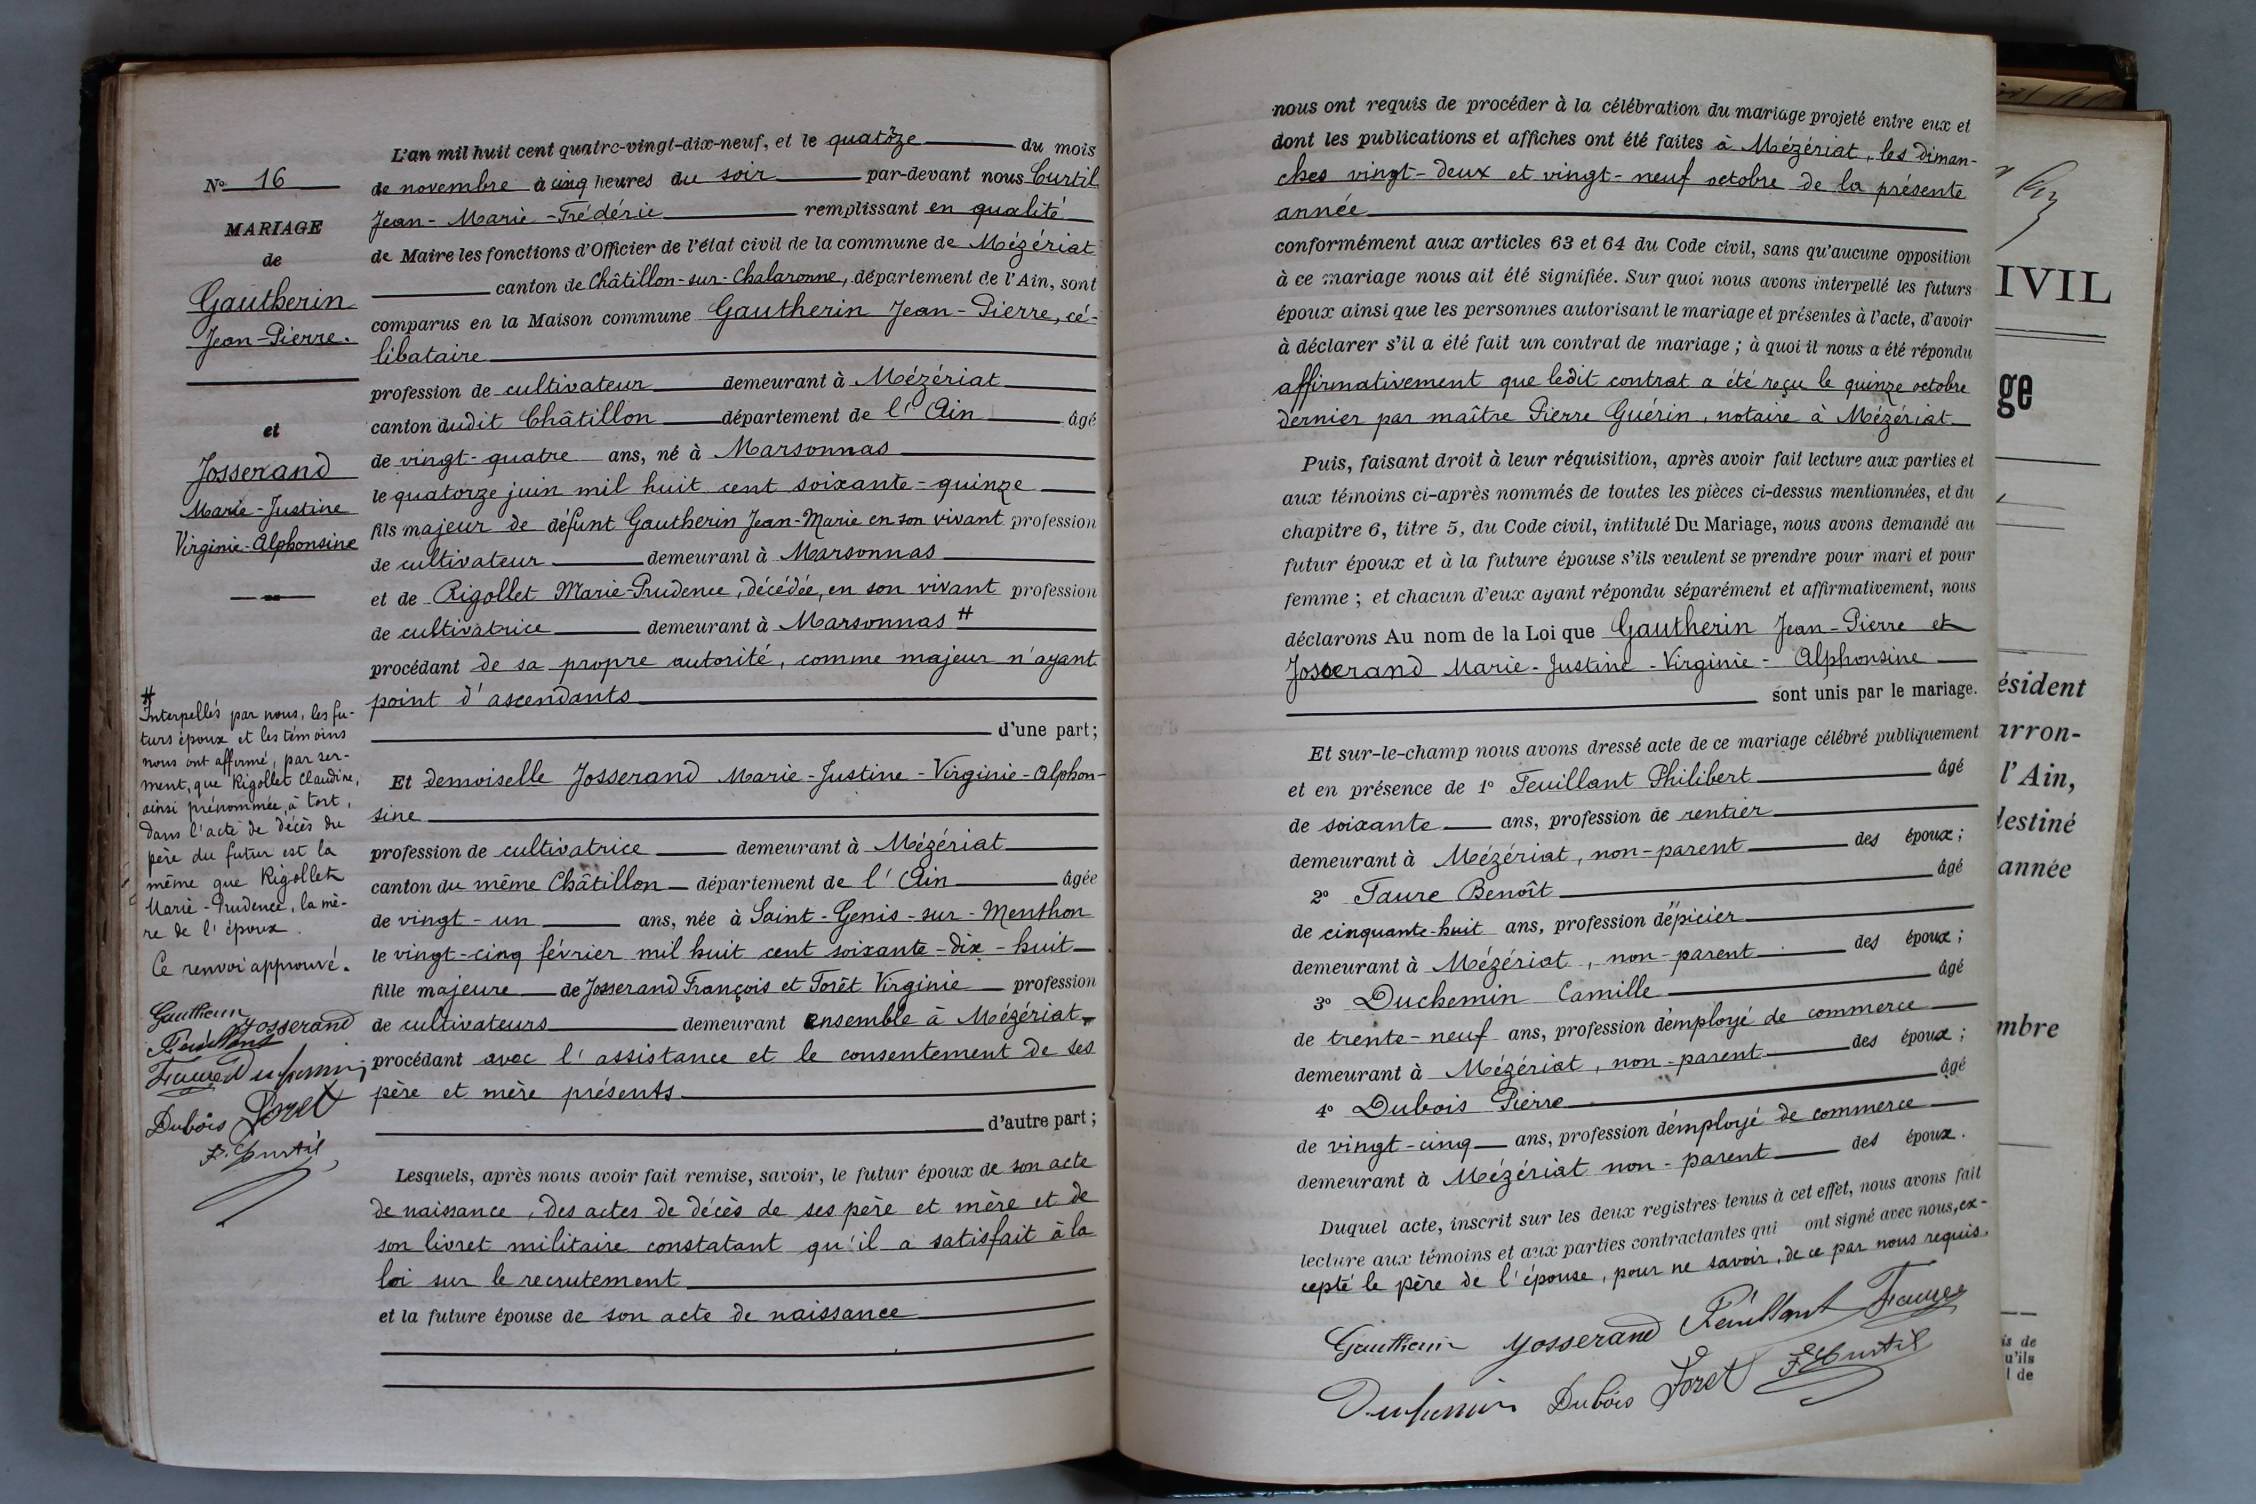 N° 16
MARIAGE
de
Gautherin
Jean-Pierre.
et
Josserand
Marie-Justine
Virginie-Alphonsine
L'an mil huit cent quatre-vingt-dix-neuf, et le quatorze du mois
de novembre à cinq heures du soir par-devant nous Curtil
Jean-Marie-Frédéric remplissant en qualité
de Maire les fonctions d'Officier de l'état civil de la commune de Mézériat
canton de Châtillon-sur-Chalaronne, département de l'Ain, sont
comparus en la Maison commune Gautherin Jean-Pierre, cé-
libataire
profession de cultivateur demeurant à Mézériat
canton dudit Châtillon département de l'Ain âgé
de vingt-quatre ans, né à Marsonnas
le quatorze juin mil huit cent soixante-quinze
fils majeur de défunt Gautherin Jean-Marie en son vivant profession
de cultivateur demeurant à Marsonnas
et de Rigollet Marie-Prudence, décédée, en son vivant profession
de cultivatrice demeurant à Marsonnas #
procédant de sa propre autorité, comme majeur n'ayant
point d'ascendants
d'une part;
Et demoiselle Josserand Marie-Justine-Virginie-Alphon-
sine
profession de cultivatrice demeurant à Mézériat
canton du même Châtillon département de l'Ain âgée
de vingt-un ans, née à Saint-Genis-sur-Menthon
le vingt-cinq février mil huit cent soixante-dix-huit
fille majeure de Josserand François et Forêt Virginie profession
de cultivateurs demeurant ensemble à Mézériat
procédant avec l'assistance et le consentement de ses
père et mère présents
d'autre part;
Lesquels, après nous avoir fait remise, savoir, le futur époux de son acte
de naissance, des actes de décès de ses père et mère et de
son livret militaire constatant qu'il a satisfait à la
loi sur le recrutement
et la future épouse de son acte de naissance
#
Interpellés par nous, les fu-
turs époux et les témoins
nous ont affirmé, par ser-
ment, que Rigollet Claudine,
ainsi prénommée, à tort,
dans l'acte de décès du
père du futur est la
même que Rigollet
Marie-Prudence, la mè-
re de l'époux.
Ce renvoi approuvé.
Gautherin
Josserand
Feuillant
Faure Duchemin
Dubois Foret
F. Curtil
nous ont requis de procéder à la célébration du mariage projeté entre eux et
dont les publications et affiches ont été faites à Mézériat, les diman-
ches vingt-deux et vingt-neuf octobre de la présente
année
conformément aux articles 63 et 64 du Code civil, sans qu'aucune opposition
à ce mariage nous ait été signifiée. Sur quoi nous avons interpellé les futurs
époux ainsi que les personnes autorisant le mariage et présentes à l'acte, d'avoir
à déclarer s'il a été fait un contrat de mariage; à quoi il nous a été répondu
affirmativement que ledit contrat a été reçu le quinze octobre
dernier par maître Pierre Guérin, notaire à Mézériat
Puis, faisant droit à leur réquisition, après avoir fait lecture aux parties et
aux témoins ci-après nommés de toutes les pièces ci-dessus mentionnées, et du
chapitre 6, titre 5, du Code civil, intitulé Du Mariage, nous avons demandé au
futur époux et à la future épouse s'ils veulent se prendre pour mari et pour
femme; et chacun d'eux ayant répondu séparément et affirmativement, nous
déclarons Au nom de la Loi que Gautherin Jean-Pierre et
Josserand Marie-Justine-Virginie-Alphonsine
sont unis par le mariage.
Et sur-le-champ nous avons dressé acte de ce mariage célébré publiquement
et en présence de 1° Feuillant Philibert âgé
de soixante ans, profession de rentier
demeurant à Mézériat, non-parent des époux;
2° Faure Benoît âgé
de cinquante-huit ans, profession d'épicier
demeurant à Mézériat, non-parent des époux;
3° Duchemin Camille âgé
de trente-neuf ans, profession d'employé de commerce
demeurant à Mézériat, non-parent des époux;
4° Dubois Pierre âgé
de vingt-cinq ans, profession d'employé de commerce
demeurant à Mézériat non-parent des époux.
Duquel acte, inscrit sur les deux registres tenus à cet effet, nous avons fait
lecture aux témoins et aux parties contractantes qui ont signé avec nous, ex-
cepté le père de l'épouse, pour ne savoir, de ce par nous requis.
Gautherin Josserand Feuillant Faure
Duchemin Dubois Foret F. Curtil
IVIL
ge
ésident
arron-
l'Ain,
destiné
année
mbre
is de
u'ils
l de